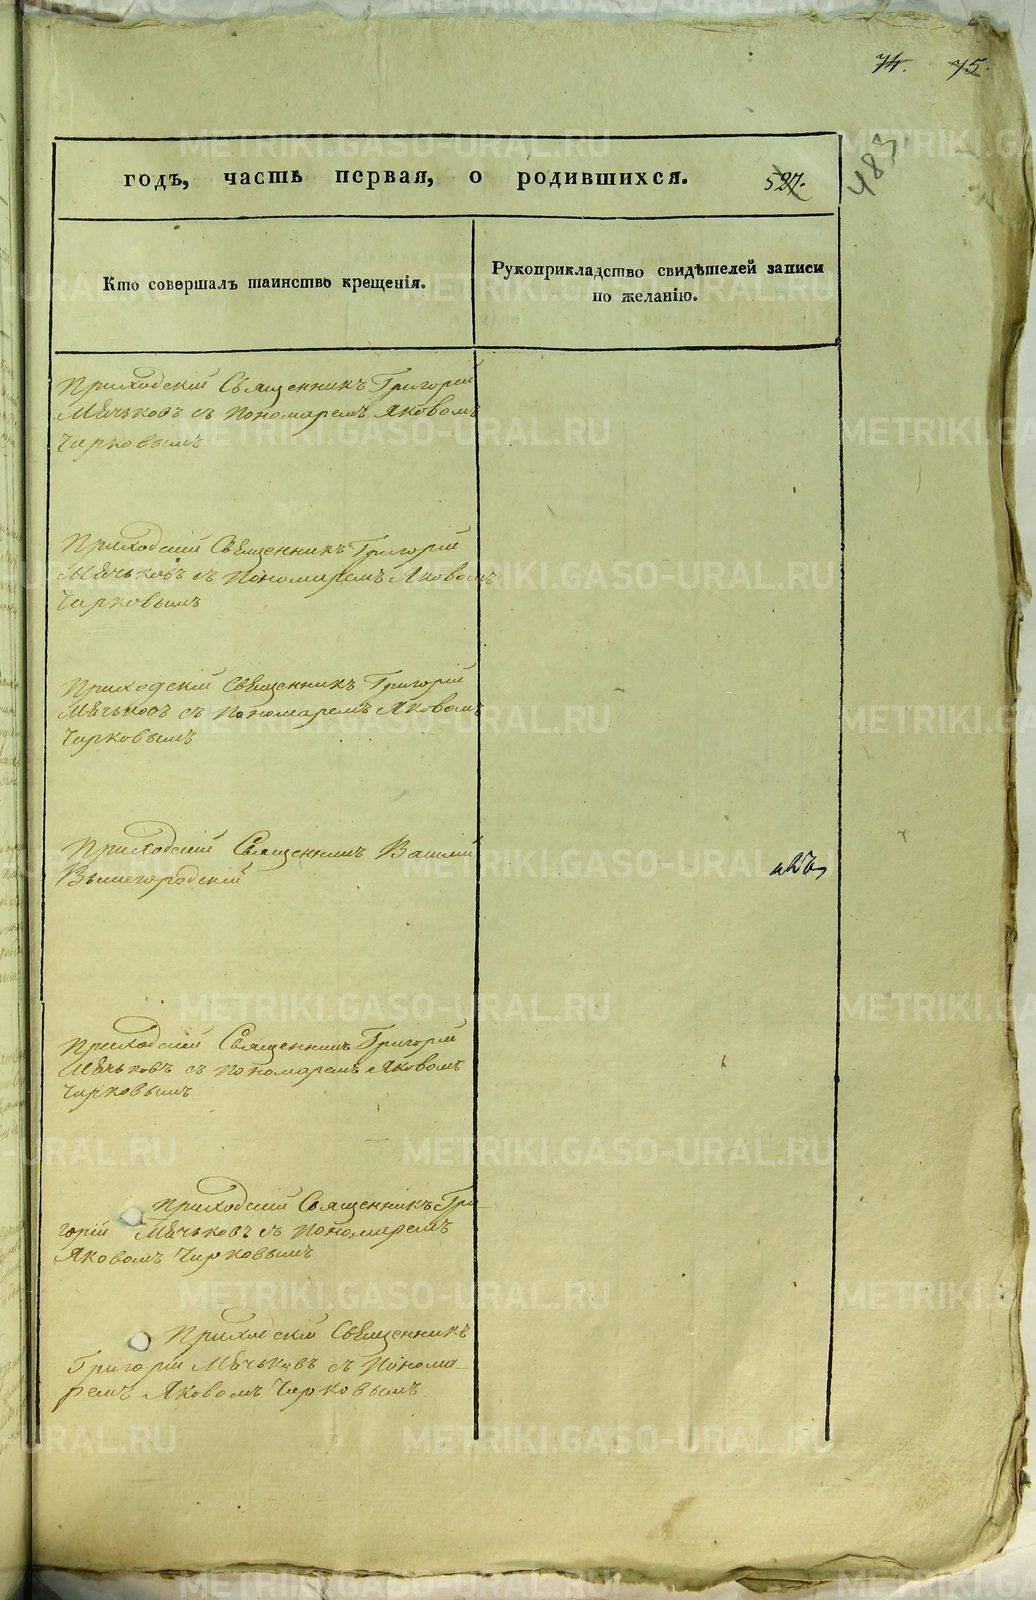 74. 75.
годъ, часть первая, о родившихся. 527.
483
Кто совершалъ таинство крещенія.
Рукоприкладство свидѣтелей записи
по желанію.
Приходскій Священникъ Григорій
Мѣчьковъ съ Пономаремъ Яковомъ
Чирковымъ
Приходскій Священникъ Григорій
Мѣчьковъ съ Пономаремъ Яковомъ
Чирковымъ
Приходскій Священникъ Григорій
Мѣчьковъ съ Пономаремъ Яковомъ
Чирковымъ
Приходскій Священникъ Василій
Вышегородскій
Приходскій Священникъ Григорій
Мѣчьковъ съ Пономаремъ Яковомъ
Чирковымъ
Приходскій Священникъ Гри-
горій Мѣчьковъ съ Пономаремъ
Яковомъ Чирковымъ
Приходскій Священникъ
Григорій Мѣчьковъ съ Понома-
ремъ Яковомъ Чирковымъ
METRIKI.GASO-URAL.RU